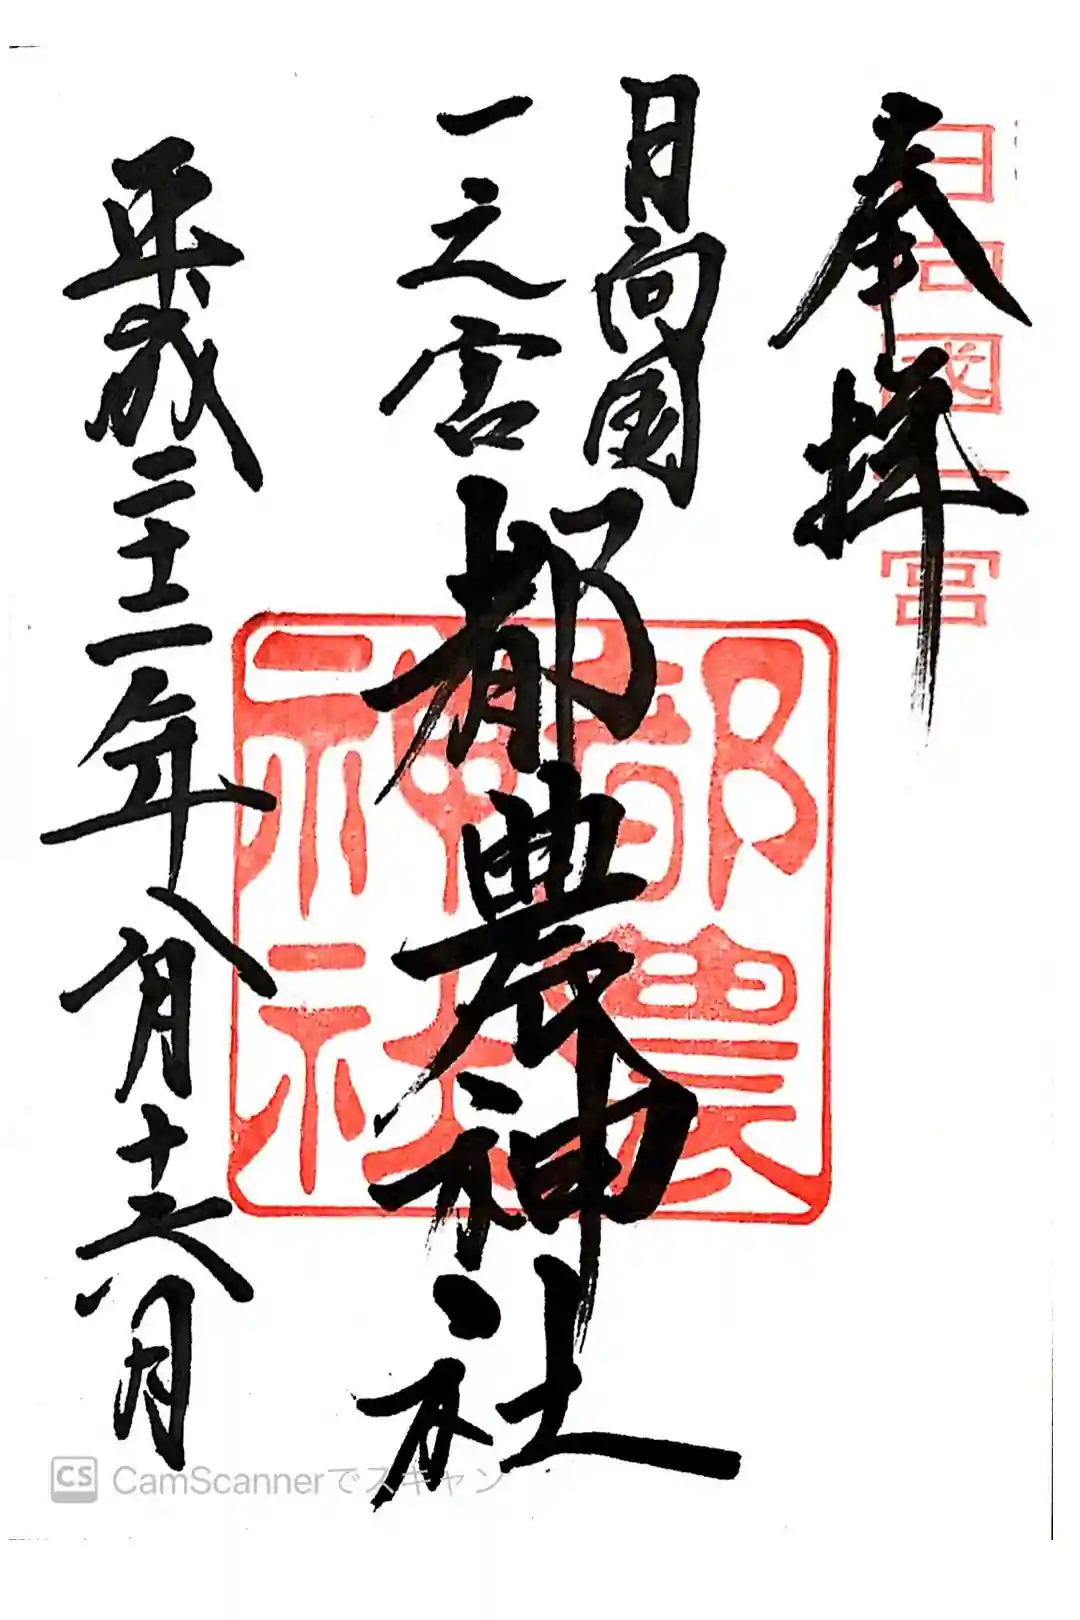 日向國一宮
奉拝
日向国
一之宮
都農神社
都農
神社
平成二十二年八月十六日
CS CamScannerでスキャン